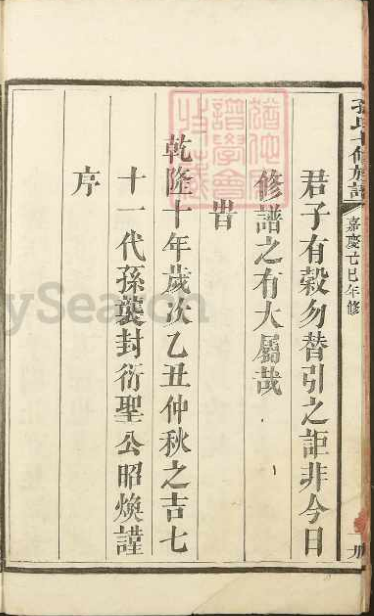 孔氏七修族譜
嘉慶亡巳年修
君子有穀勿替引之詎非今日
修譜之有大屬哉
旹
乾隆十年歲次乙丑仲秋之吉七
十一代孫襲封衍聖公昭煥謹
序